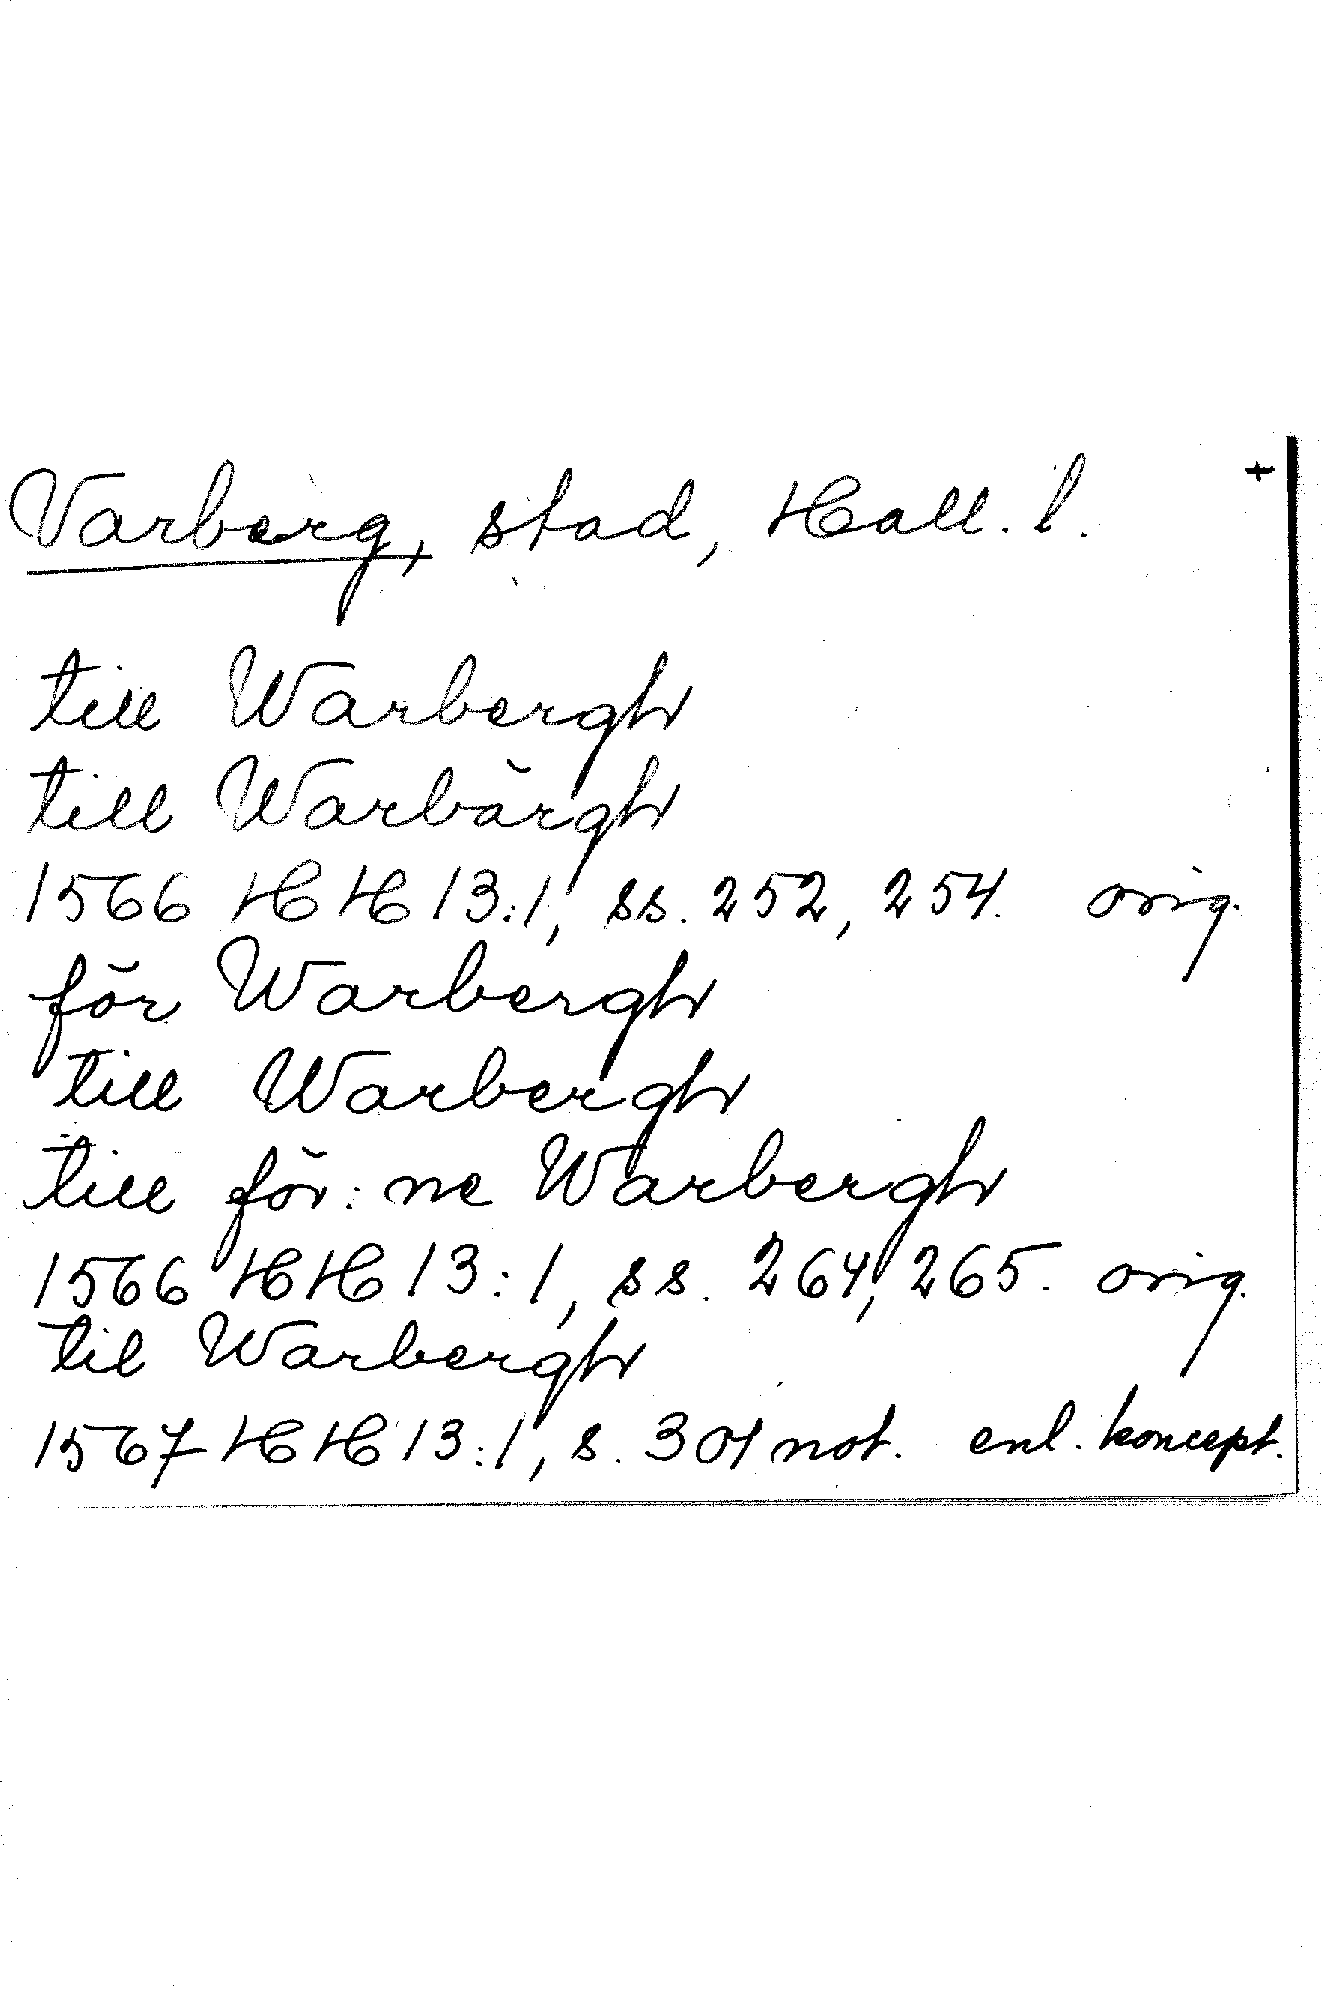 Varberg, stad, Hall. l. +
till Warbergh
till Warbärgh
1566 HH 13:1, ss. 252, 254. orig.
för Warbergh
till Warbergh
till för:ne Warbergh
1566 HH 13:1, ss. 264, 265. orig.
til Warbergh
1567 HH 13:1, s. 301 not. enl. koncept.